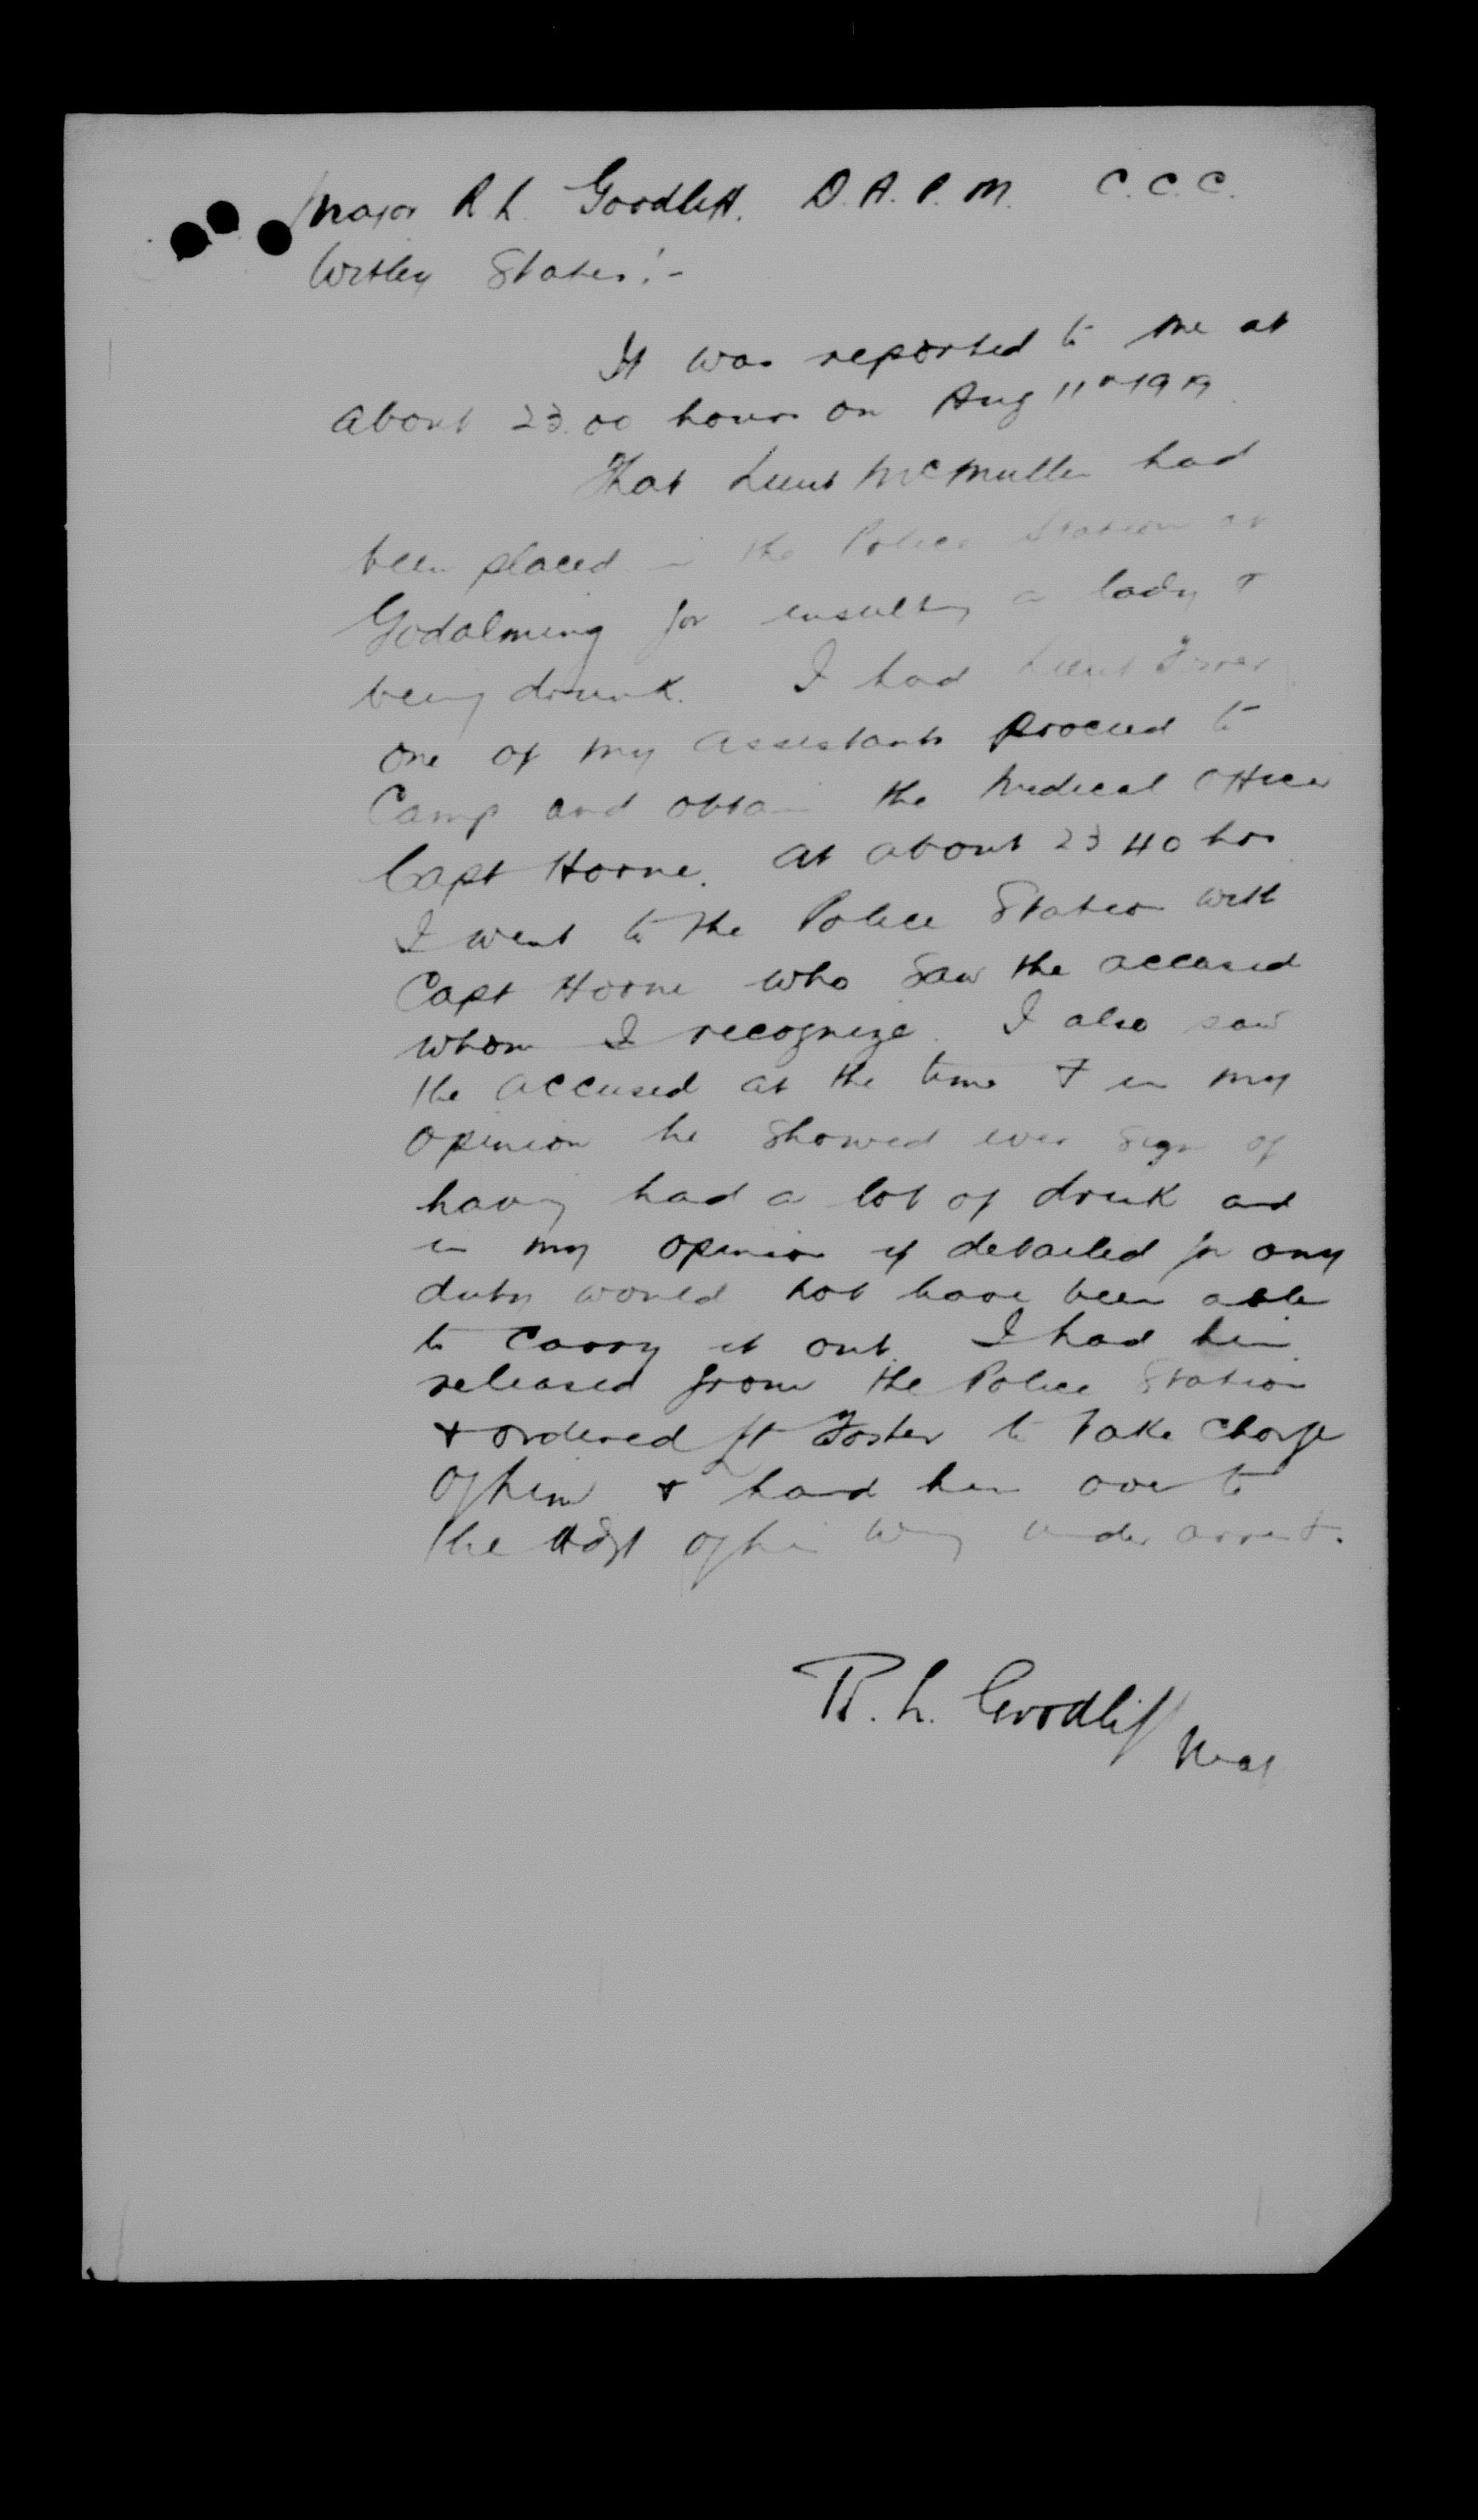 Major R L. Goodliff. D.A.P.M. C.C.C.
Witley States:-
It was reported to me at
about 23.00 hours on Aug 11th 1919.
That Lieut McMullen had
been placed in the Police Station at
Godalming for insulting a lady &
being drunk. I had Lieut
one of my assistants proceed to
Camp and obtain the Medical Officer
Capt Horne. At about 23 40 hrs
I went to the Police Station with
Capt Horne who saw the accused
whom I recognize. I also saw
the accused at the time & in my
opinion he showed ever sign of
having had a lot of drink and
in my opinion if detailed for any
duty would not have been able
to carry it out. I had him
released from the Police Station
& ordered Lt Foster to take charge
of him & hand him over to
the Adjt of his Wing under arrest.
R. L. Goodliff Maj